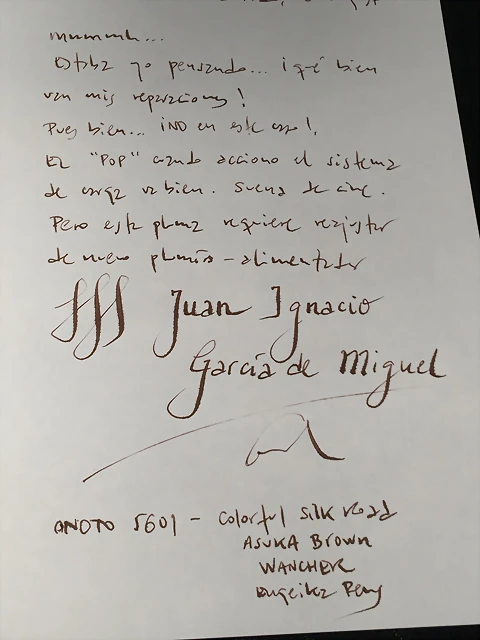 mmmmh...
Estaba yo pensando... ¡qué bien
van mis reparaciones!
Pues bien... ¡NO en este caso!.
EL "POP" cuando acciono el sistema
de carga va bien. Suena de cine.
Pero esta pluma requiere reajustar
de nuevo plumín-alimentador
Juan Ignacio
García de Miguel
ONOTO 5601 - Colorful silk road
ASUKA Brown
WANCHER